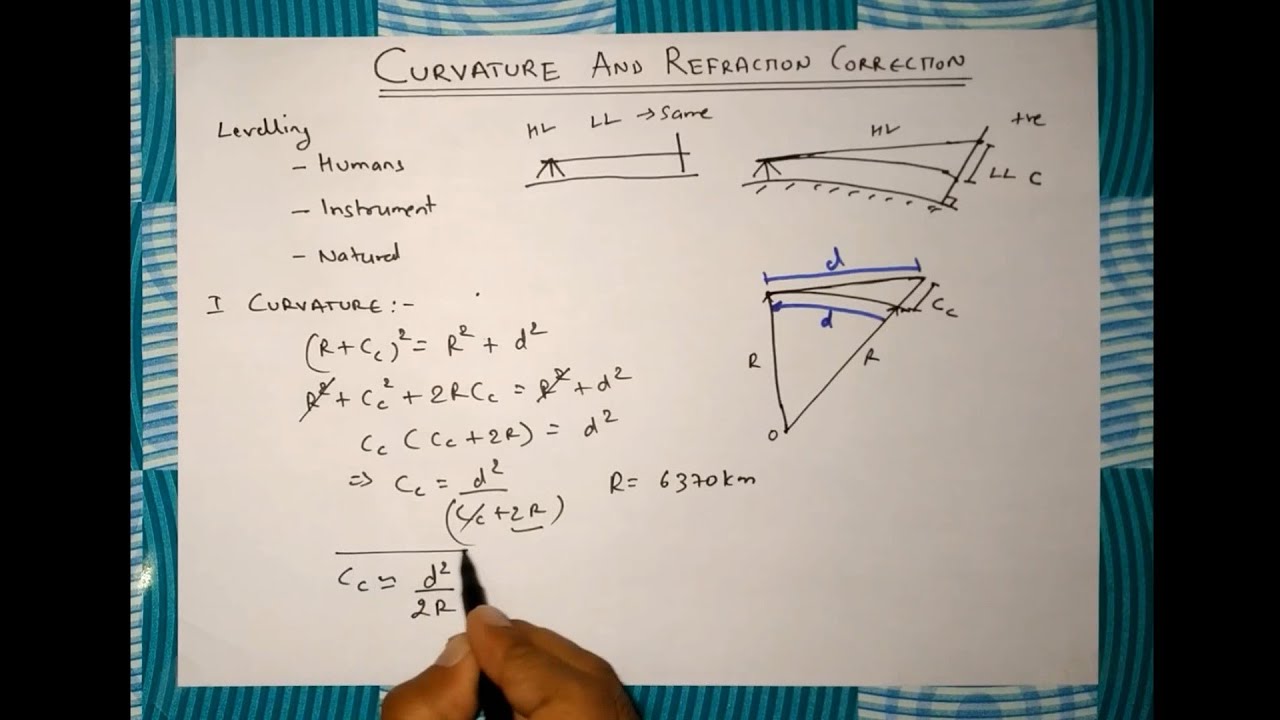 CURVATURE AND REFRACTION CORRECTION
Levelling
- Humans
- Instrument
- Natural
HL LL → Same
HL +ve
LL C
I CURVATURE:-
(R+Cc)² = R² + d²
R² + Cc² + 2RCc = R² + d²
Cc (Cc+2R) = d²
⇒ Cc = d² / (Cc+2R)
R = 6370km
Cc ≃ d² / 2R
d
d
Cc
R
R
O